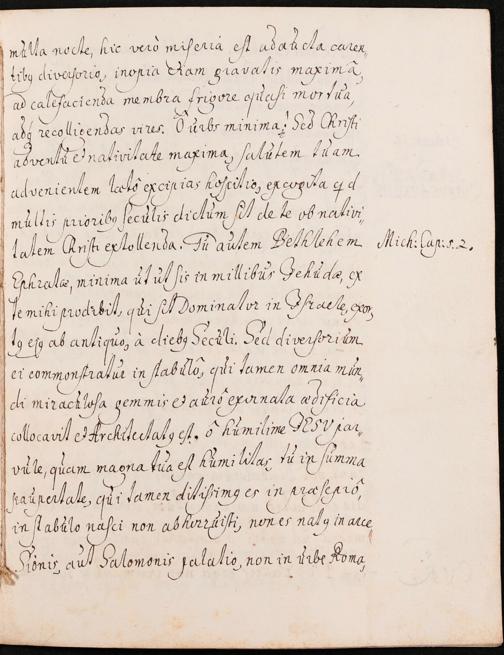 multa nocte, hic verò miseria est adaucta caren-
tibꝫ diversorio, inopia etiam gravatis maximâ,
ad calefacienda membra frigore quasi mortua,
adqꝫ recolligendas vires. O urbs minima! Sed Christi
adventu et nativitate maxima, salutem tuam
advenientem lætô excipias hospitio, excogita qd
multis prioribꝫ seculis dictum sit de te ob nativi-
tatem Christi extollenda. Tu autem Bethlehem
Mich: Cap: 5. 2.
Ephratæ, minima ut ut sis in millibus Jehudæ, ex
te mihi prodibit, qui sit Dominator in Ysraele, exor-
tꝫ eꝫ ab antiquo, à diebꝫ Seculi. Sed diversorium
ei commonstratur in stabulô, qui tamen omnia mun-
di miraculosa gemmis et aurô exornata ædificia
collocavit et Architectatꝫ est. ô humilime JESU par-
vule, quam magna tua est humilitas, tu in summa
paupertate, qui tamen ditissimꝫ es in præsepiô,
in stabulo nasci non abhorruisti, non es natꝫ in arce
Sionis, aut Salomonis palatio, non in urbe Roma,